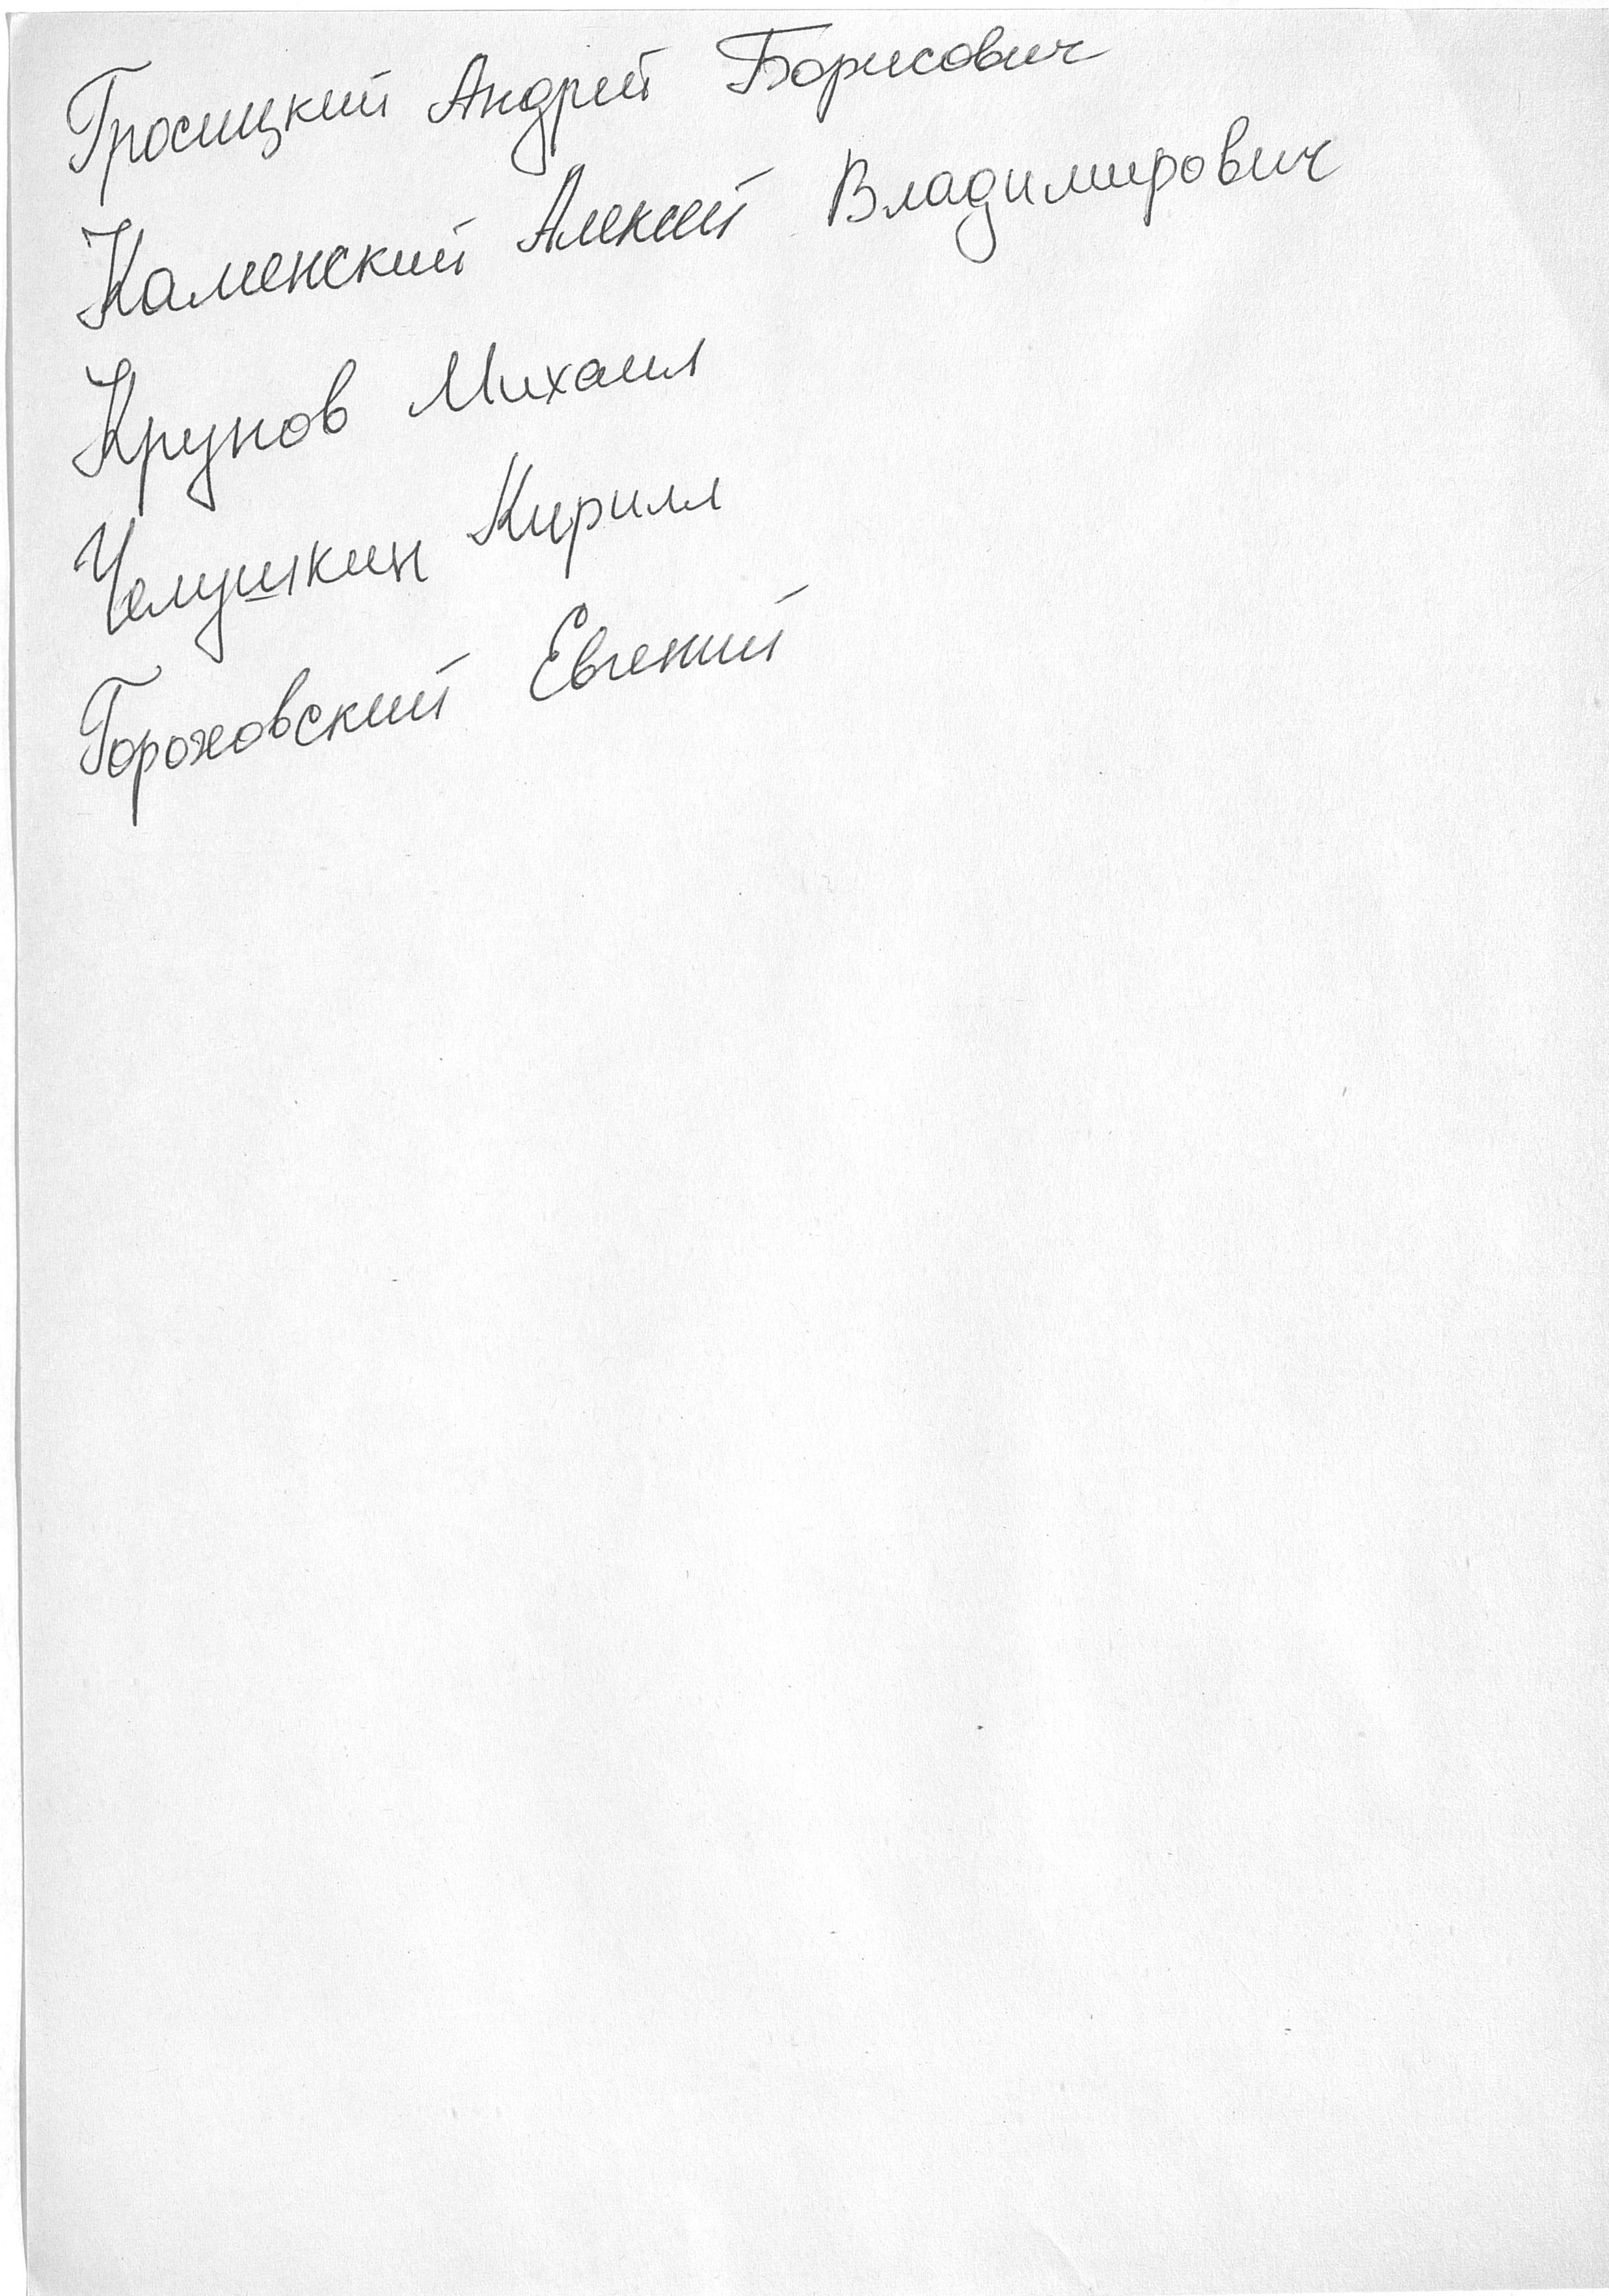 Гросицкий Андрей Борисович
Каменский Алексей Владимирович
Крунов Михаил
Челушкин Кирилл
Гороховский Евгений